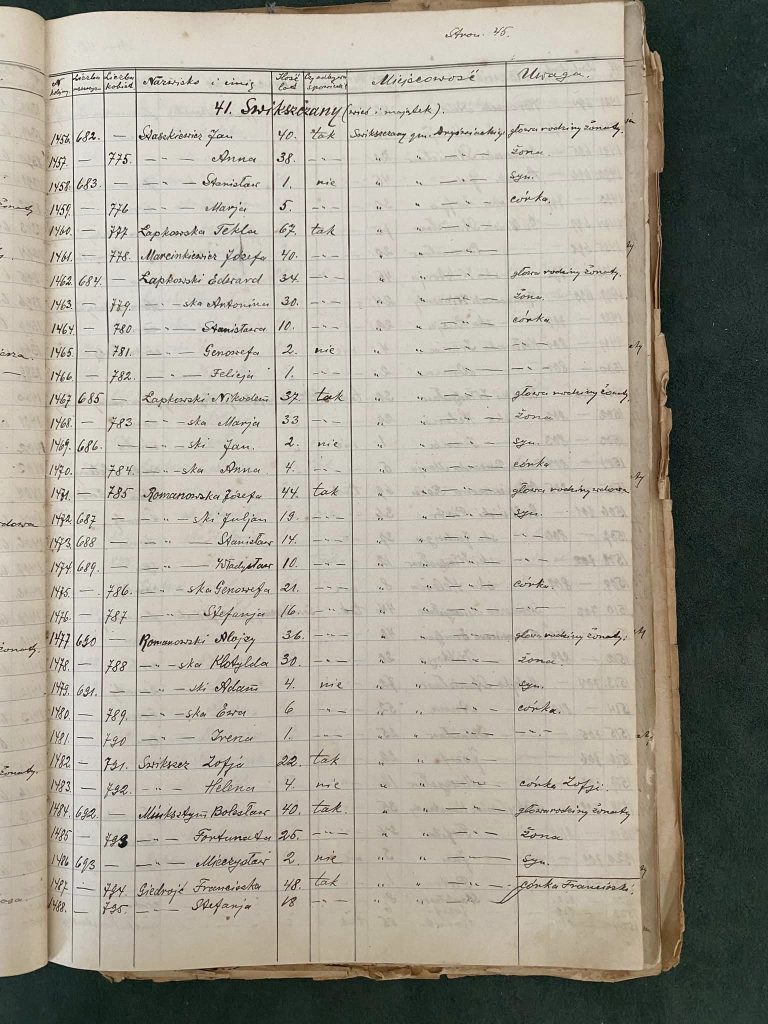 Stron. 45.
N Liczba Liczba kobiet Nazwisko i imię Ilość lat Czy odbywa spowiedź Miejscowość Uwaga.
41. Swikszczany (wieś i majątek).
1456. 682. — Staszkiewicz Jan 40. tak Swikszczany gm. głowa rodziny żonaty.
1457. — 775. — „ — Anna 38. — „ — „ „ — „ — żona.
1458. 683. — — „ — Stanisław 1. nie „ „ — „ — syn.
1459. — 776 — „ — Marja 5. — „ — „ „ — „ — córka.
1460. — 777 Lapkowska Tekla 67. tak „ „ — „ —
1461. — 778. Marcinkiewicz Józefa 40. — „ — „ „ — „ —
1462. 684. — Lapkowski Edward 34. — „ — „ „ — „ — głowa rodziny żonaty.
1463. — 779. — „ — ska Antonina 30. — „ — „ „ — „ — żona.
1464. — 780 — „ — Stanisława 10. — „ — „ „ — „ — córka
1465. — 781. — „ — Genowefa 2. nie „ „ — „ — — „ —
1466. — 782. — „ — Felicja 1. — „ — „ „ — „ — — „ —
1467. 685 — Lapkowski Nikodem 37. tak „ „ — „ — głowa rodziny żonaty.
1468. — 783 — „ — ska Marja 33 — „ — „ „ — „ — żona
1469. 686. — — „ — ski Jan. 2. nie „ „ — „ — syn.
1470. — 784. — „ — ska Anna 4. — „ — „ „ — „ — córka
1471. — 785 Romanowska Józefa 44. tak „ „ — „ — głowa rodziny wdowa
1472. 687 — — „ — ski Juljan 19. — „ — „ „ — „ — syn.
1473. 688 — — „ — Stanisław 14. — „ — „ „ — „ — — „ —
1474. 689. — — „ — Władysław 10. — „ — „ „ — „ —
1475. — 786. — „ — ska Genowefa 21. — „ — „ „ — „ — córka.
1476. — 787 — „ — Stefanja 16. — „ — „ „ — „ — — „ —
1477 690 — Romanowski Alojzy 36. — „ — „ „ — „ — głowa rodziny żonaty.
1478. — 788 — „ — ska Klotylda 30. — „ — „ „ — „ — żona.
1479. 691. — — „ — ski Adam 4. nie „ „ — „ — syn.
1480. — 789. — „ — ska Ewa 6 — „ — „ „ — „ — córka.
1481. — 790 — „ — Irena 1. — „ — „ „ — „ — — „ —
1482. — 791. Swikszcz Zofja 22. tak „ „ — „ —
1483. — 792. — „ — Helena 4. nie „ „ — „ — córka Zofji.
1484. 692. — Minksztym Bolesław 40. tak „ „ — „ — głowa rodziny żonaty
1485 — 793 — „ — Fortunata 25. — „ — „ „ — „ — żona
1486 693 — — „ — Mieczysław 2. nie „ „ — „ — syn.
1487. — 794. Giedrojć Franciszka 48. tak „ „ — „ —
1488. — 795. — „ — Stefanja 18 — „ — „ „ — „ — córka Franciszki.